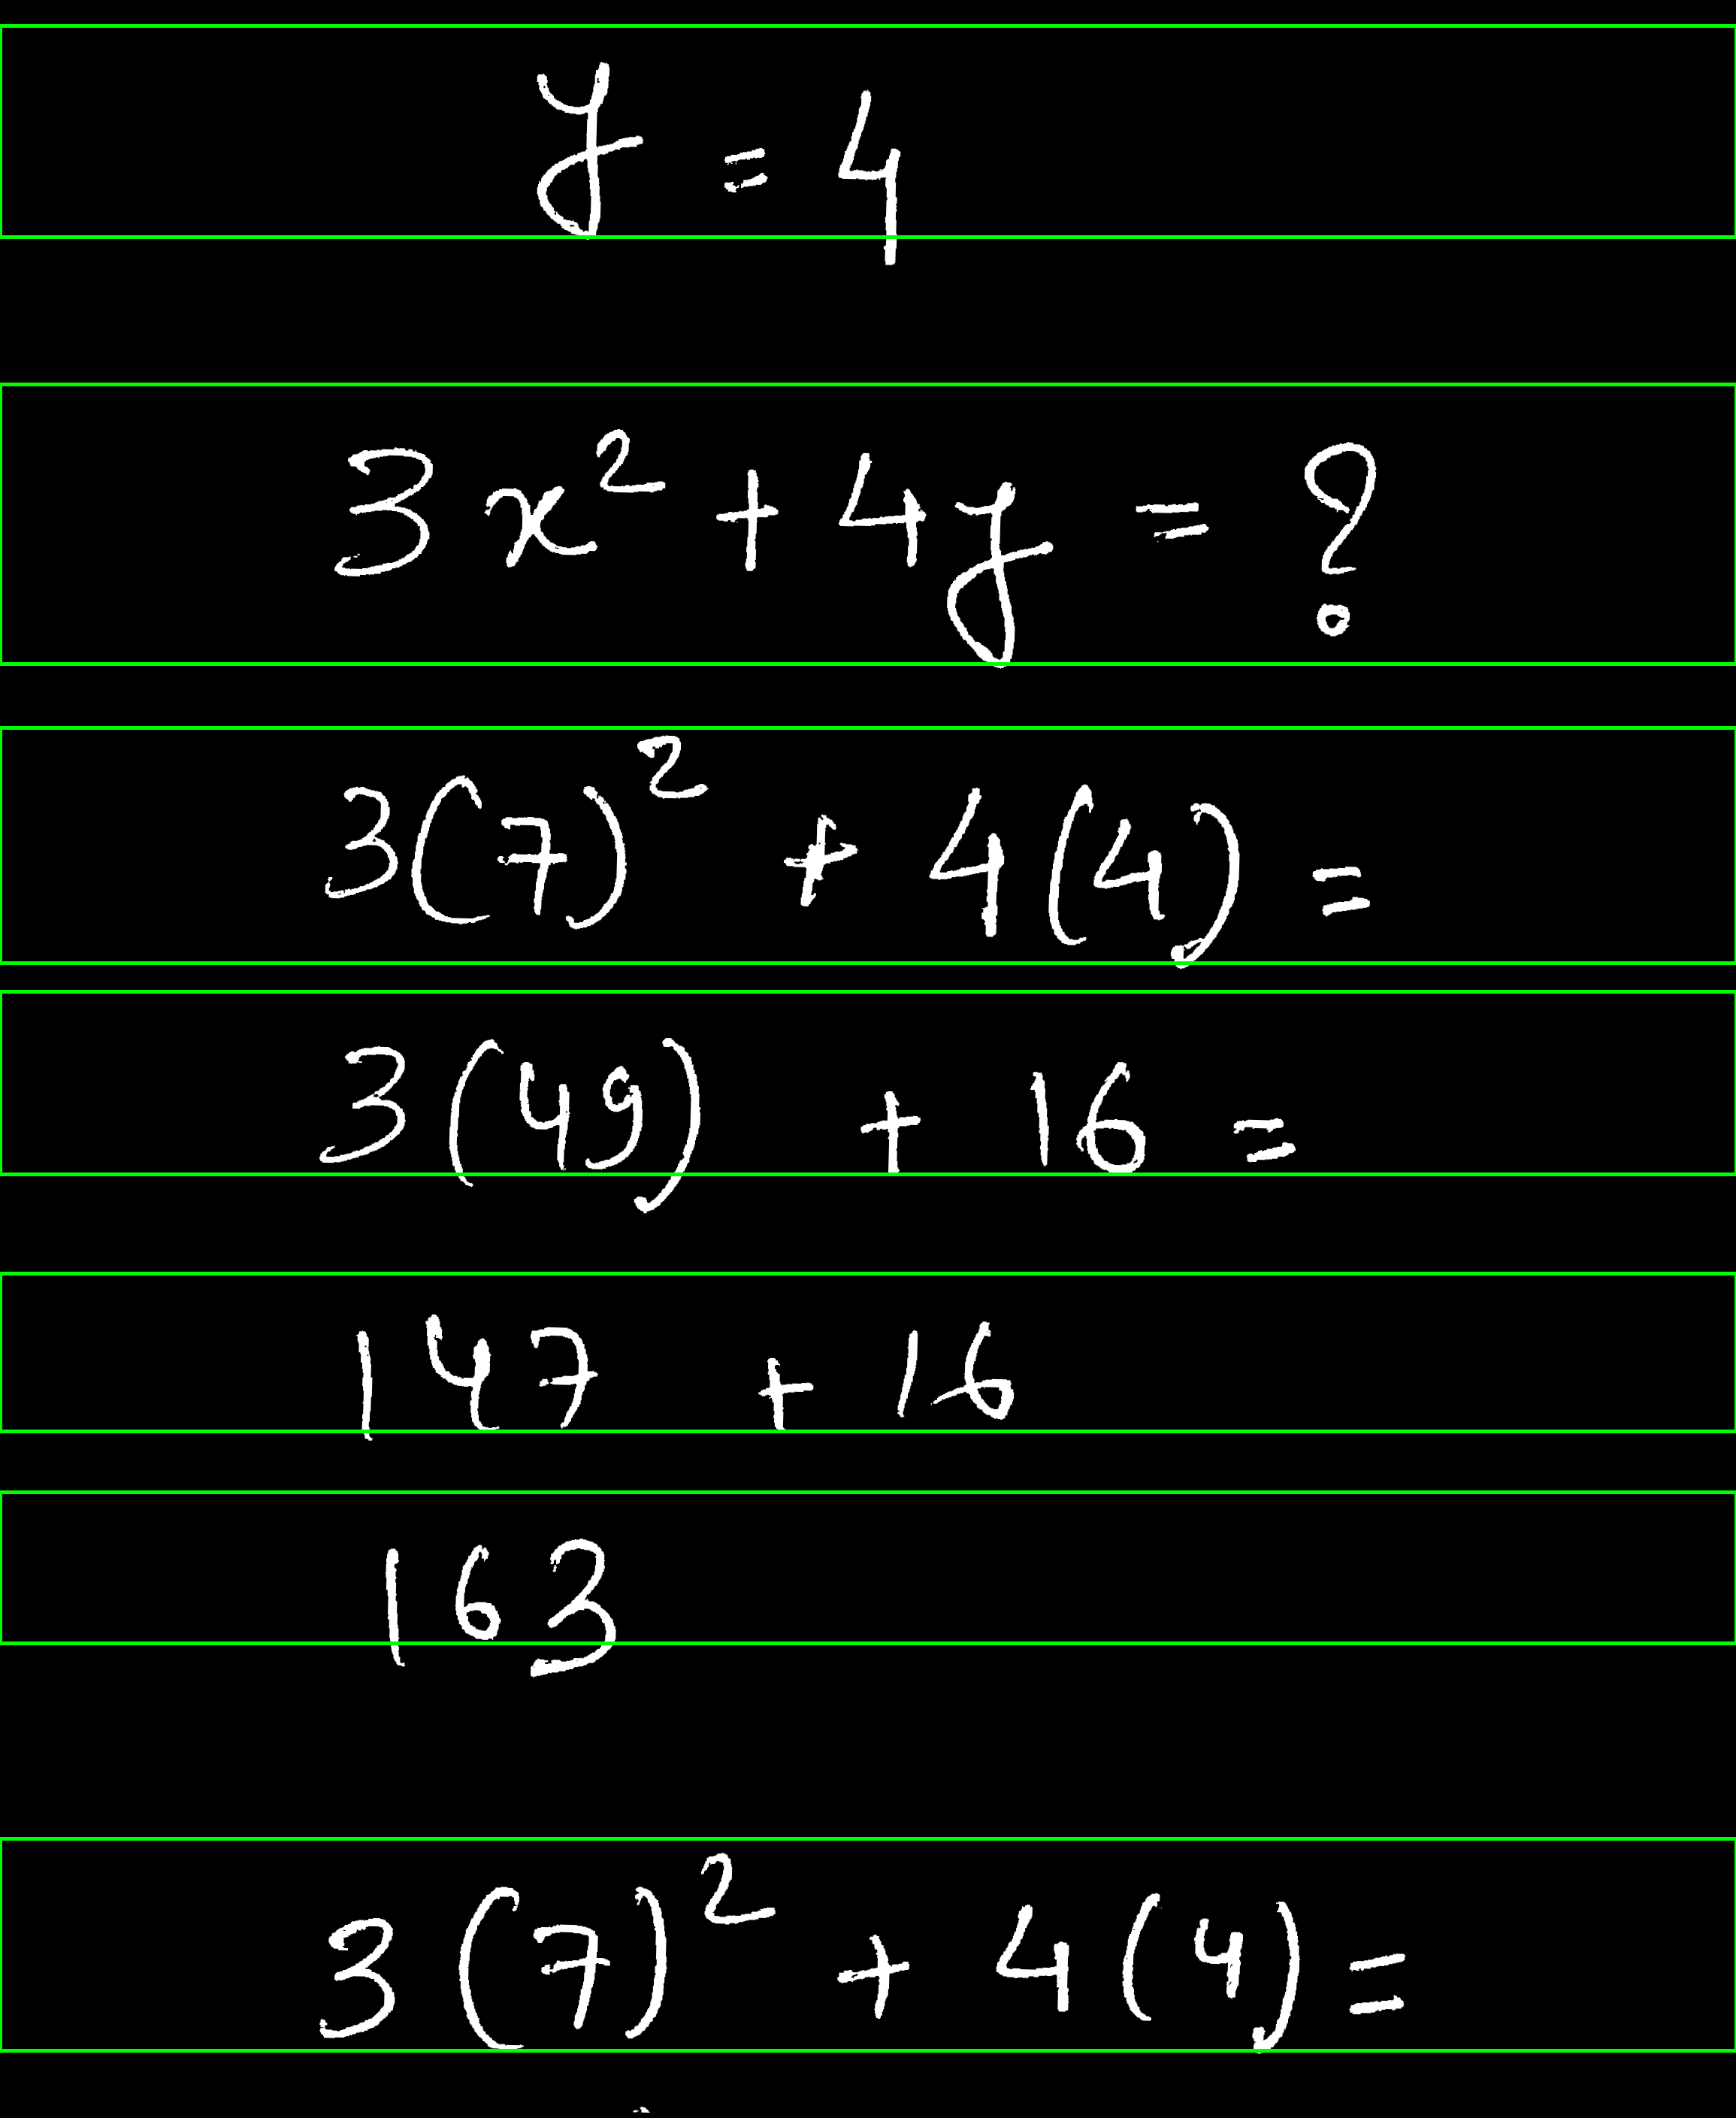 y = 4
3x² + 4y = ?
3(7)² + 4(4) =
3(49) + 16 =
147 + 16
163
3(7)² + 4(4) =